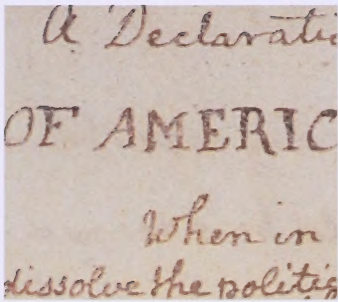 A Declarati
OF AMERIC
When in
dissolve the politic